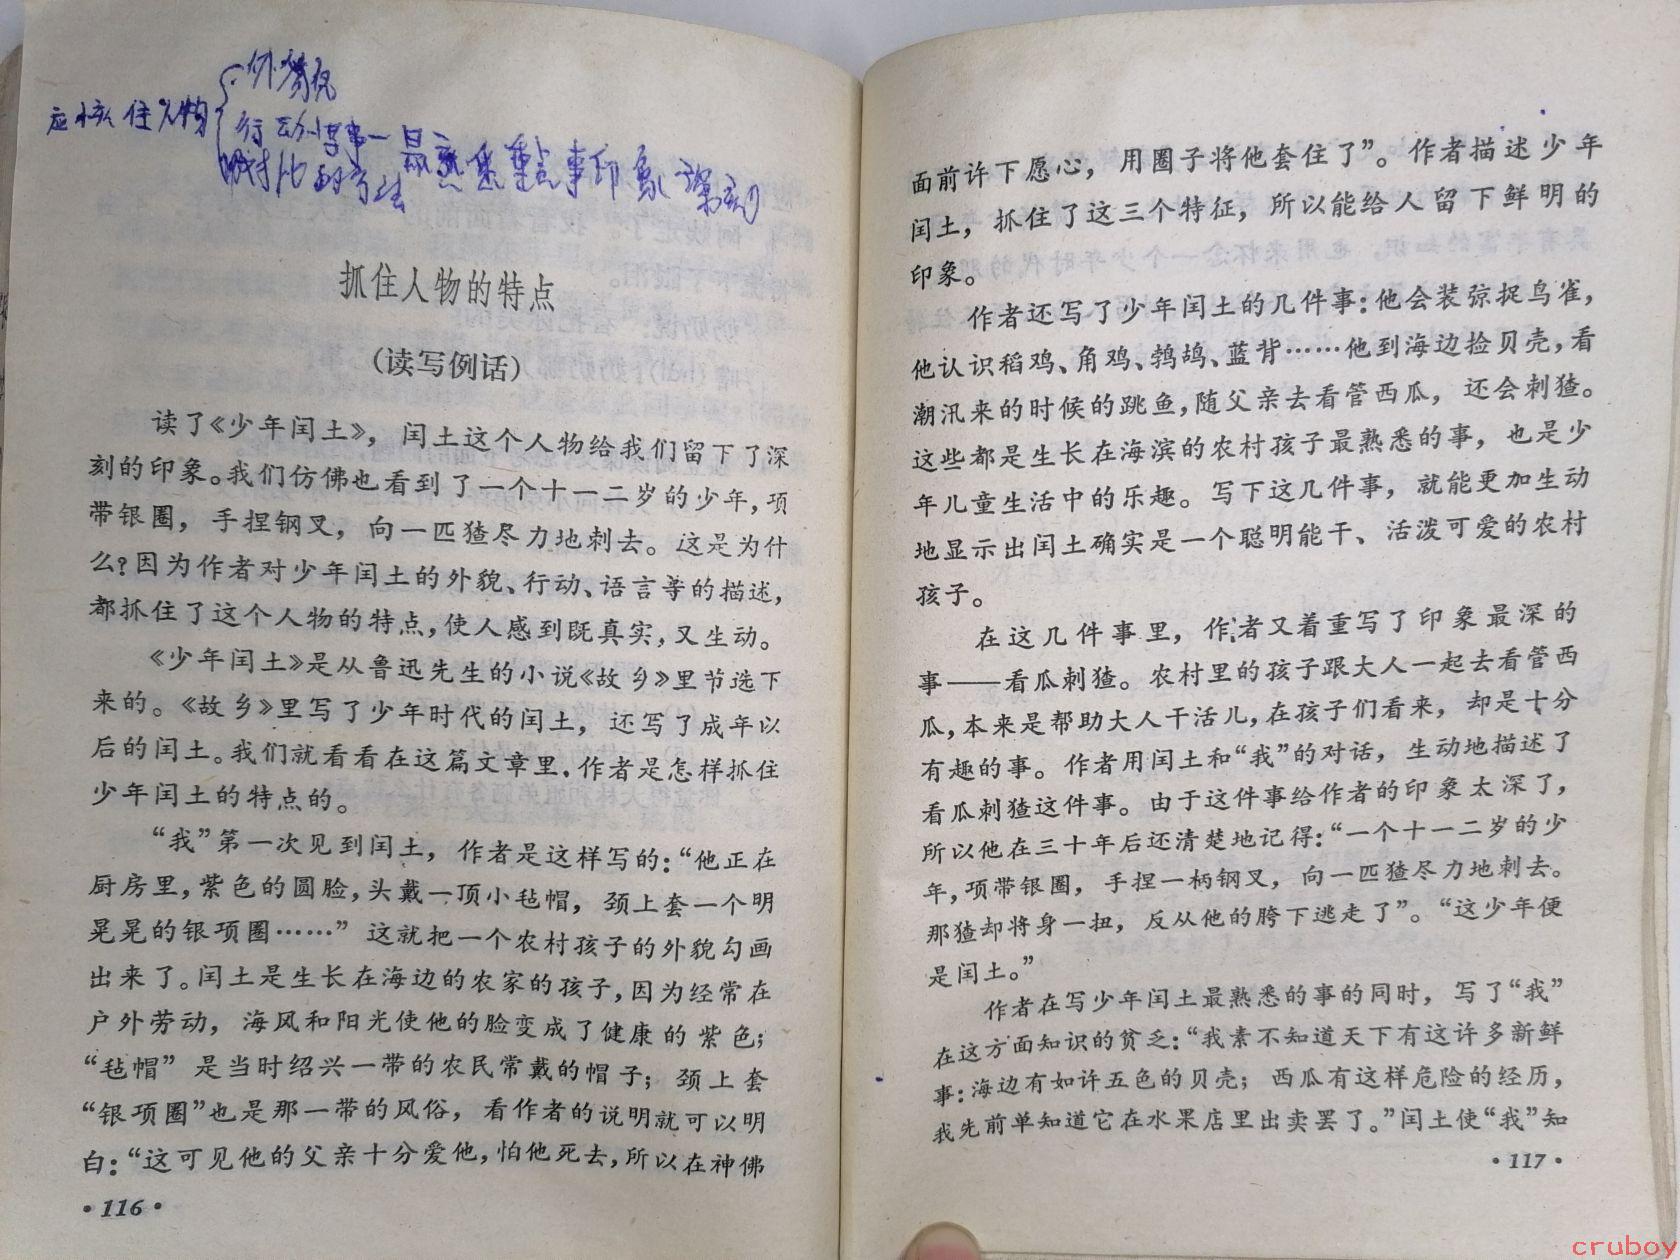 外貌
应 住人物
行动 事一最熟悉重点事印象深刻
对比的方法
抓住人物的特点
（读写例话）
读了《少年闰土》，闰土这个人物给我们留下了深
刻的印象。我们仿佛也看到了一个十一二岁的少年，项
带银圈，手捏钢叉，向一匹猹尽力地刺去。这是为什
么？因为作者对少年闰土的外貌、行动、语言等的描述，
都抓住了这个人物的特点，使人感到既真实，又生动。
《少年闰土》是从鲁迅先生的小说《故乡》里节选下
来的。《故乡》里写了少年时代的闰土，还写了成年以
后的闰土。我们就看看在这篇文章里，作者是怎样抓住
少年闰土的特点的。
“我”第一次见到闰土，作者是这样写的：“他正在
厨房里，紫色的圆脸，头戴一顶小毡帽，颈上套一个明
晃晃的银项圈……”这就把一个农村孩子的外貌勾画
出来了。闰土是生长在海边的农家的孩子，因为经常在
户外劳动，海风和阳光使他的脸变成了健康的紫色；
“毡帽”是当时绍兴一带的农民常戴的帽子；颈上套
“银项圈”也是那一带的风俗，看作者的说明就可以明
白：“这可见他的父亲十分爱他，怕他死去，所以在神佛
·116·
面前许下愿心，用圈子将他套住了”。作者描述少年
闰土，抓住了这三个特征，所以能给人留下鲜明的
印象。
作者还写了少年闰土的几件事：他会装弶捉鸟雀，
他认识稻鸡、角鸡、鹁鸪、蓝背……他到海边捡贝壳，看
潮汛来的时候的跳鱼，随父亲去看管西瓜，还会刺猹。
这些都是生长在海滨的农村孩子最熟悉的事，也是少
年儿童生活中的乐趣。写下这几件事，就能更加生动
地显示出闰土确实是一个聪明能干、活泼可爱的农村
孩子。
在这几件事里，作者又着重写了印象最深的
事——看瓜刺猹。农村里的孩子跟大人一起去看管西
瓜，本来是帮助大人干活儿，在孩子们看来，却是十分
有趣的事。作者用闰土和“我”的对话，生动地描述了
看瓜刺猹这件事。由于这件事给作者的印象太深了，
所以他在三十年后还清楚地记得：“一个十一二岁的少
年，项带银圈，手捏一柄钢叉，向一匹猹尽力地刺去。
那猹却将身一扭，反从他的胯下逃走了”。“这少年便
是闰土。”
作者在写少年闰土最熟悉的事的同时，写了“我”
在这方面知识的贫乏：“我素不知道天下有这许多新鲜
事：海边有如许五色的贝壳；西瓜有这样危险的经历，
我先前单知道它在水果店里出卖罢了。”闰土使“我”知
·117·
cruboy